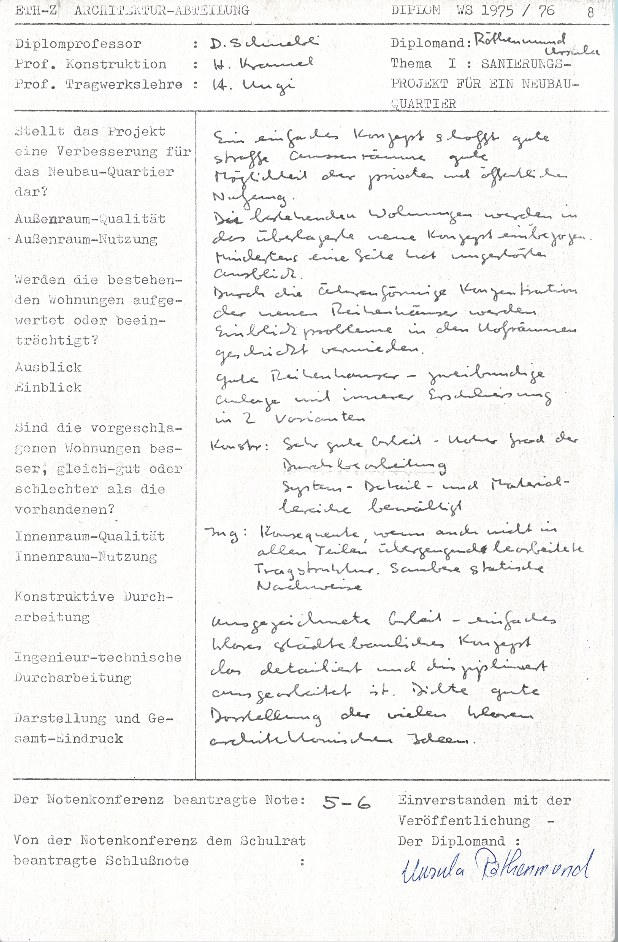 ETH-Z ARCHITEKTUR-ABTEILUNG DIPLOM WS 1975 / 76 8
Diplomprofessor : D. Schnebli
Prof. Konstruktion : H. Kramel
Prof. Tragwerkslehre :
Diplomand: Röthenmund Ursula
Thema I : SANIERUNGS-
PROJEKT FÜR EIN NEUBAU-
QUARTIER
Stellt das Projekt
eine Verbesserung für
das Neubau-Quartier
dar?
Außenraum-Qualität
Außenraum-Nutzung
Werden die bestehen-
den Wohnungen aufge-
wertet oder beein-
trächtigt?
Ausblick
Einblick
Sind die vorgeschla-
genen Wohnungen bes-
ser, gleich-gut oder
schlechter als die
vorhandenen?
Innenraum-Qualität
Innenraum-Nutzung
Konstruktive Durch-
arbeitung
Ingenieur-technische
Durcharbeitung
Darstellung und Ge-
samt-Eindruck
Ein einfaches Konzept schafft gute
straffe Aussenräume gute
Möglichkeit der privaten und öffentlichen
Nutzung.
Die bestehenden Wohnungen werden in
das überlagerte neue Konzept einbezogen.
Mindestens eine Seite hat ungestörten
Ausblick.
Durch die Konzentration
der neuen Reihenhäuser werden
Einblickprobleme in den Hofräumen
geschickt vermieden.
Gute Reihenhäuser - zweibündige
Anlage mit innerer Erschliessung
in 2 Varianten
Konstr: Sehr gute Arbeit - Hoher Grad der
Durchbearbeitung
System- Detail- und Material-
bereiche bewältigt
Ing: Konsequente, wenn auch nicht in
allen Teilen überzeugende bearbeitete
Tragstruktur. Saubere statische
Nachweise
Ausgezeichnete Arbeit - einfaches
klares städtebauliches Konzept
das detailiert und diszipliniert
ausgearbeitet ist. Dichte gute
Darstellung der vielen klaren
architektonischen Ideen.
Der Notenkonferenz beantragte Note: 5-6
Von der Notenkonferenz dem Schulrat
beantragte Schlußnote :
Einverstanden mit der
Veröffentlichung -
Der Diplomand :
Ursula Röthenmund